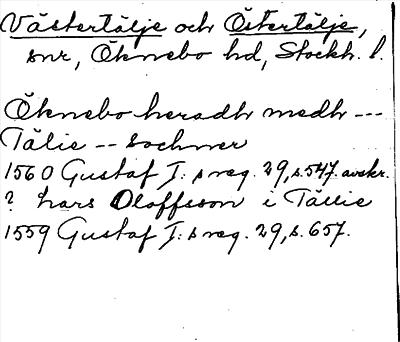 Västertälje och Östertälje,
snr, Öknebo hd, Stockh. l.
Öknebo heradh medh ---
Tälie -- sochner
1560 Gustaf I:s reg. 29, s. 547. avskr.
? Lars Oloffsson i Tällie
1559 Gustaf I:s reg. 29, s. 657.